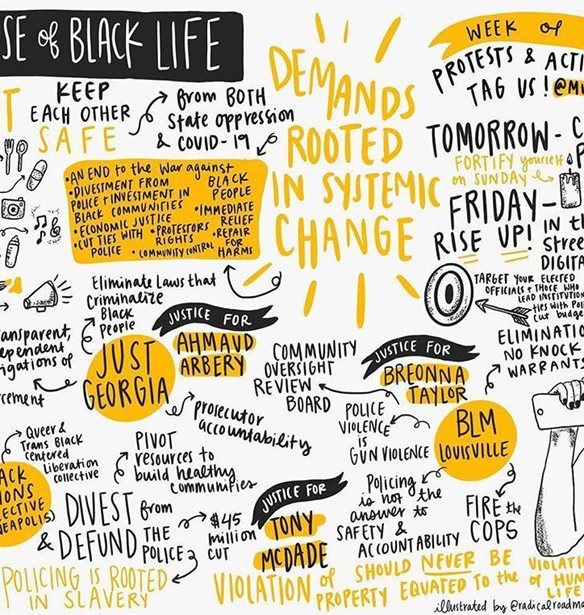 SE of BLACK LIFE
KEEP
EACH OTHER
SAFE
from BOTH
state oppression
& COVID-19
• AN END to the war against BLACK PEOPLE
• DIVESTMENT FROM
POLICE + INVESTMENT IN
BLACK COMMUNITIES
• ECONOMIC JUSTICE
• CUT TIES WITH POLICE
• PROTESTORS RIGHTS
• COMMUNITY CONTROL
• IMMEDIATE RELIEF
• REPAIR FOR HARMS
DEMANDS
ROOTED
IN SYSTEMIC
CHANGE
WEEK OF
PROTESTS & ACTI
TAG US! @M
TOMORROW -
FORTIFY yourself
on SUNDAY
FRIDAY -
RISE UP!
IN the
Stree
DIGITA
TARGET YOUR ELECTED
OFFICIALS + THOSE WHO
LEAD INSTITUTION
ties with Poli
cut budge
Eliminate Laws that
criminalize
Black
People
JUSTICE FOR
AHMAUD
ARBERY
JUST
GEORGIA
ransparent,
ependent
igations of
cement
prosecutor
accountability
COMMUNITY
OVERSIGHT
REVIEW
BOARD
JUSTICE FOR
BREONNA
TAYLOR
ELIMINATIO
NO KNOCK
WARRANTS
POLICE
VIOLENCE
is
GUN VIOLENCE
BLM
LOUISVILLE
Policing
is not the
answer to
SAFETY &
ACCOUNTABILITY
FIRE the
COPS
Queer &
Trans Black
centered
Liberation
collective
ACK
IONS
ECTIVE
EAPOLIS)
PIVOT
resources to
build healthy
communities
DIVEST from
& DEFUND THE
POLICE
$45
million
CUT
JUSTICE FOR
TONY
MCDADE
POLICING is ROOTED
IN SLAVERY
VIOLATION of PROPERTY
SHOULD NEVER BE
EQUATED to the
VIOLATIO
of HUM
LIFE
illustrated by @radicalroadm